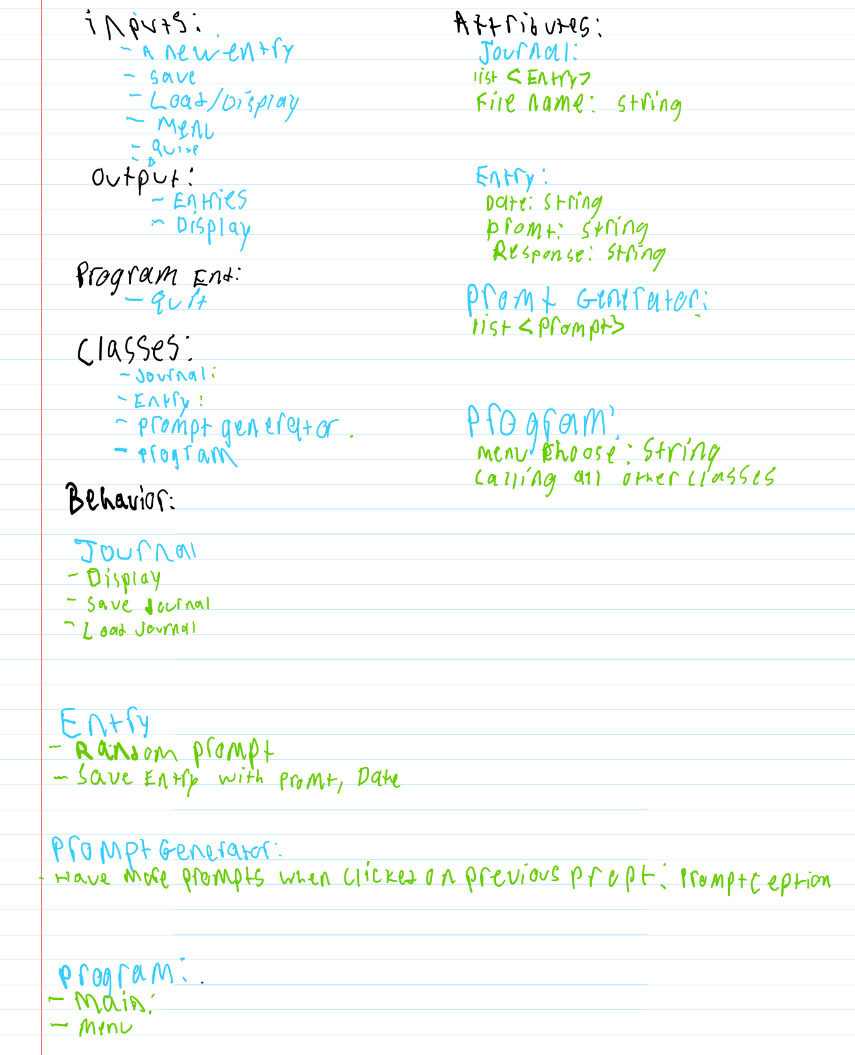 inputs:
- A new entry
- Save
- Load/Display
- Menu
output:
- Entries
- Display
Program End:
- quit
Classes:
- Journal:
- Entry:
- prompt generator.
- program
Behavior:
Journal
- Display
- Save Journal
- Load Journal
Entry
- Random prompt
- Save Entry with promt, Date
Prompt Generator:
- Have more prompts when clicked on previous propt: PromptCeption
program:.
- Main:
- Menu
Attributes:
Journal:
list <Entry>
File name: string
Entry:
Date: String
promt: String
Response: String
promt Generator:
list <prompt>
Program:
menu choose: String
calling all other classes